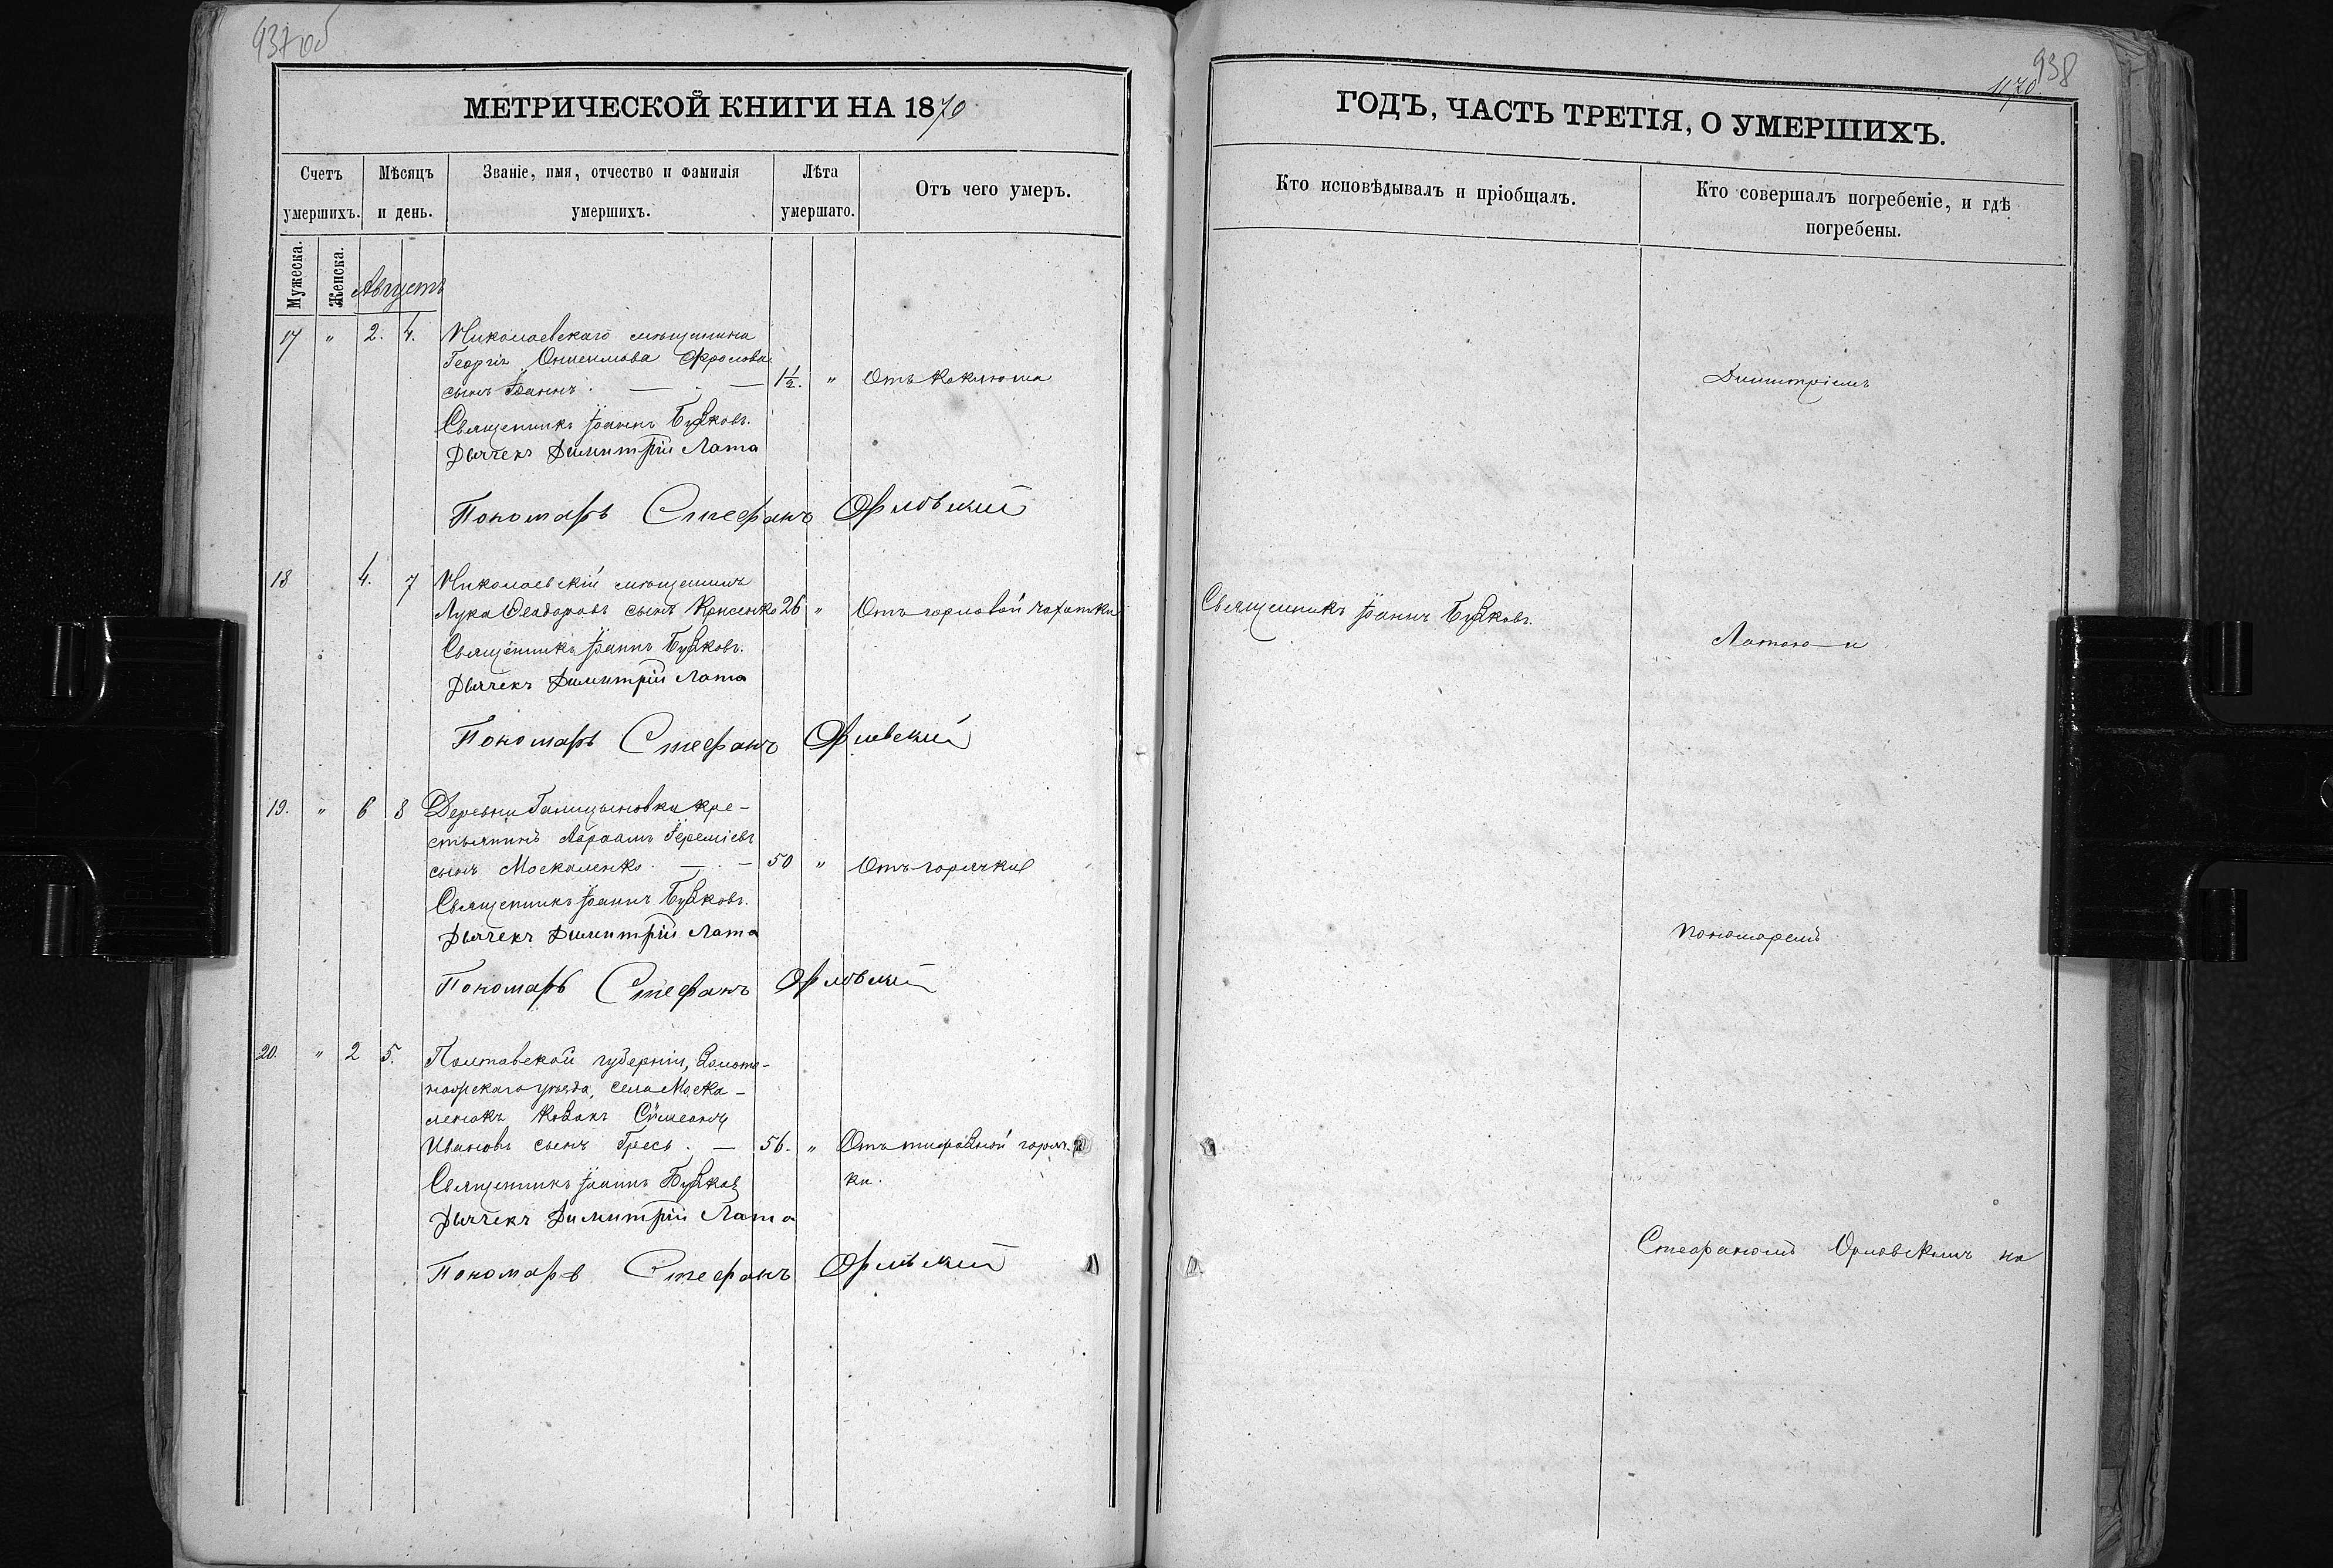 937об
МЕТРИЧЕСКОЙ КНИГИ НА 1870
Счетъ умершихъ.
Мѣсяцъ и день.
Званіе, имя, отчество и фамилія умершихъ.
Лѣта умершаго.
Отъ чего умеръ.
Мужеска.
Женска.
Августъ
17 " 2. 4. Николаевскаго мѣщанина
Георгія Онисимова Фролова
сынъ Іоаннъ. — . — 1½. " Отъ коклюша
Священникъ Іоаннъ
Дьячекъ Димитрій Лата
Пономарь Стефанъ Орловскій
18 4. 7 Николаевскій мѣщанинъ
Лука Феодоровъ сынъ 26 " Отъ горловой чахотки
Священникъ Іоаннъ
Дьячекъ Димитрій Лата
Пономарь Стефанъ Орловскій
19. " 6 8 Деревни Галицыновки кре-
стьянинъ Авраамъ Іереміевъ
сынъ Москаленко. — . — 50 " Отъ горячки
Священникъ Іоаннъ
Дьячекъ Димитрій Лата
Пономарь Стефанъ Орловскій
20. " 2 5. Полтавской губерніи, Золото-
ношскаго уѣзда, села Моска-
ленокъ Козакъ Сѷмеонъ
Ивановъ сынъ Гресь. — 56. " Отъ тифозной горяч-
ки.
Священникъ Іоаннъ
Дьячекъ Димитрій Лата
Пономарь Стефанъ Орловскій
938
1170
ГОДЪ, ЧАСТЬ ТРЕТІЯ, О УМЕРШИХЪ.
Кто исповѣдывалъ и пріобщалъ.
Кто совершалъ погребеніе, и гдѣ
погребены.
Димитріемъ
Священникъ Іоаннъ
Латою и
пономаремъ
Стефаномъ Орловскимъ на